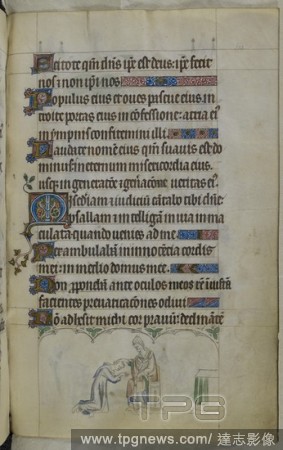 Scitote qm̄ dn̄s ip̄e est deus: ip̄e fecit
nos ⁊ non ip̄i nos
Populus eius et oves pascue eius in
troite portas eius in confessione: atria ei᷒
in ympnis confitemini illi
Laudate nomē eius qm̄ suavis est do
minus in eternum misericordia eius
usq; in generacōe ⁊ genacōne veritas ei᷒
Misc̄diam ⁊ iudiciū cātabo tibi dn̄e
psallam ⁊ intelligam in via inma
culata quando venies ad me
Perambulabā in innocētia cordis
mei: in medio domus mee
Non p̱ponebā ante oculos meos rē iniustā
facientes prevaricaciones odivi
Nō adhesit michi cor pravū: declinātē
TPG
www.tpgnews.com / 達志影像